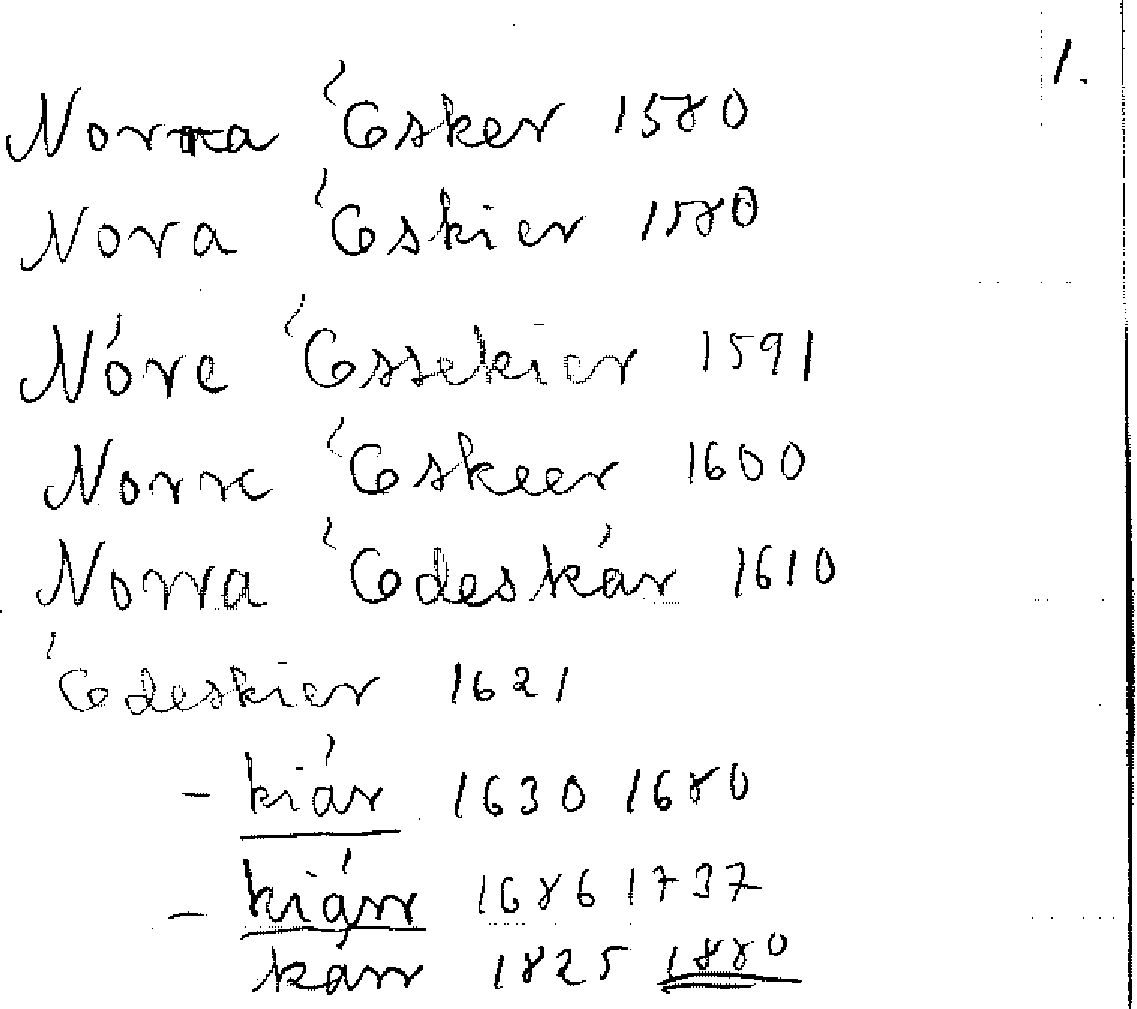 1.
Norra ʹEsker 1580
Nora ʹEskier 1580
Nóre ʹEssekier 1591
Norre ʹEskeer 1600
Norra ʹEdeskár 1610
ʹEdeskier 1621
- kiár 1630 1680
- kiárr 1686 1737
karr 1825 1880